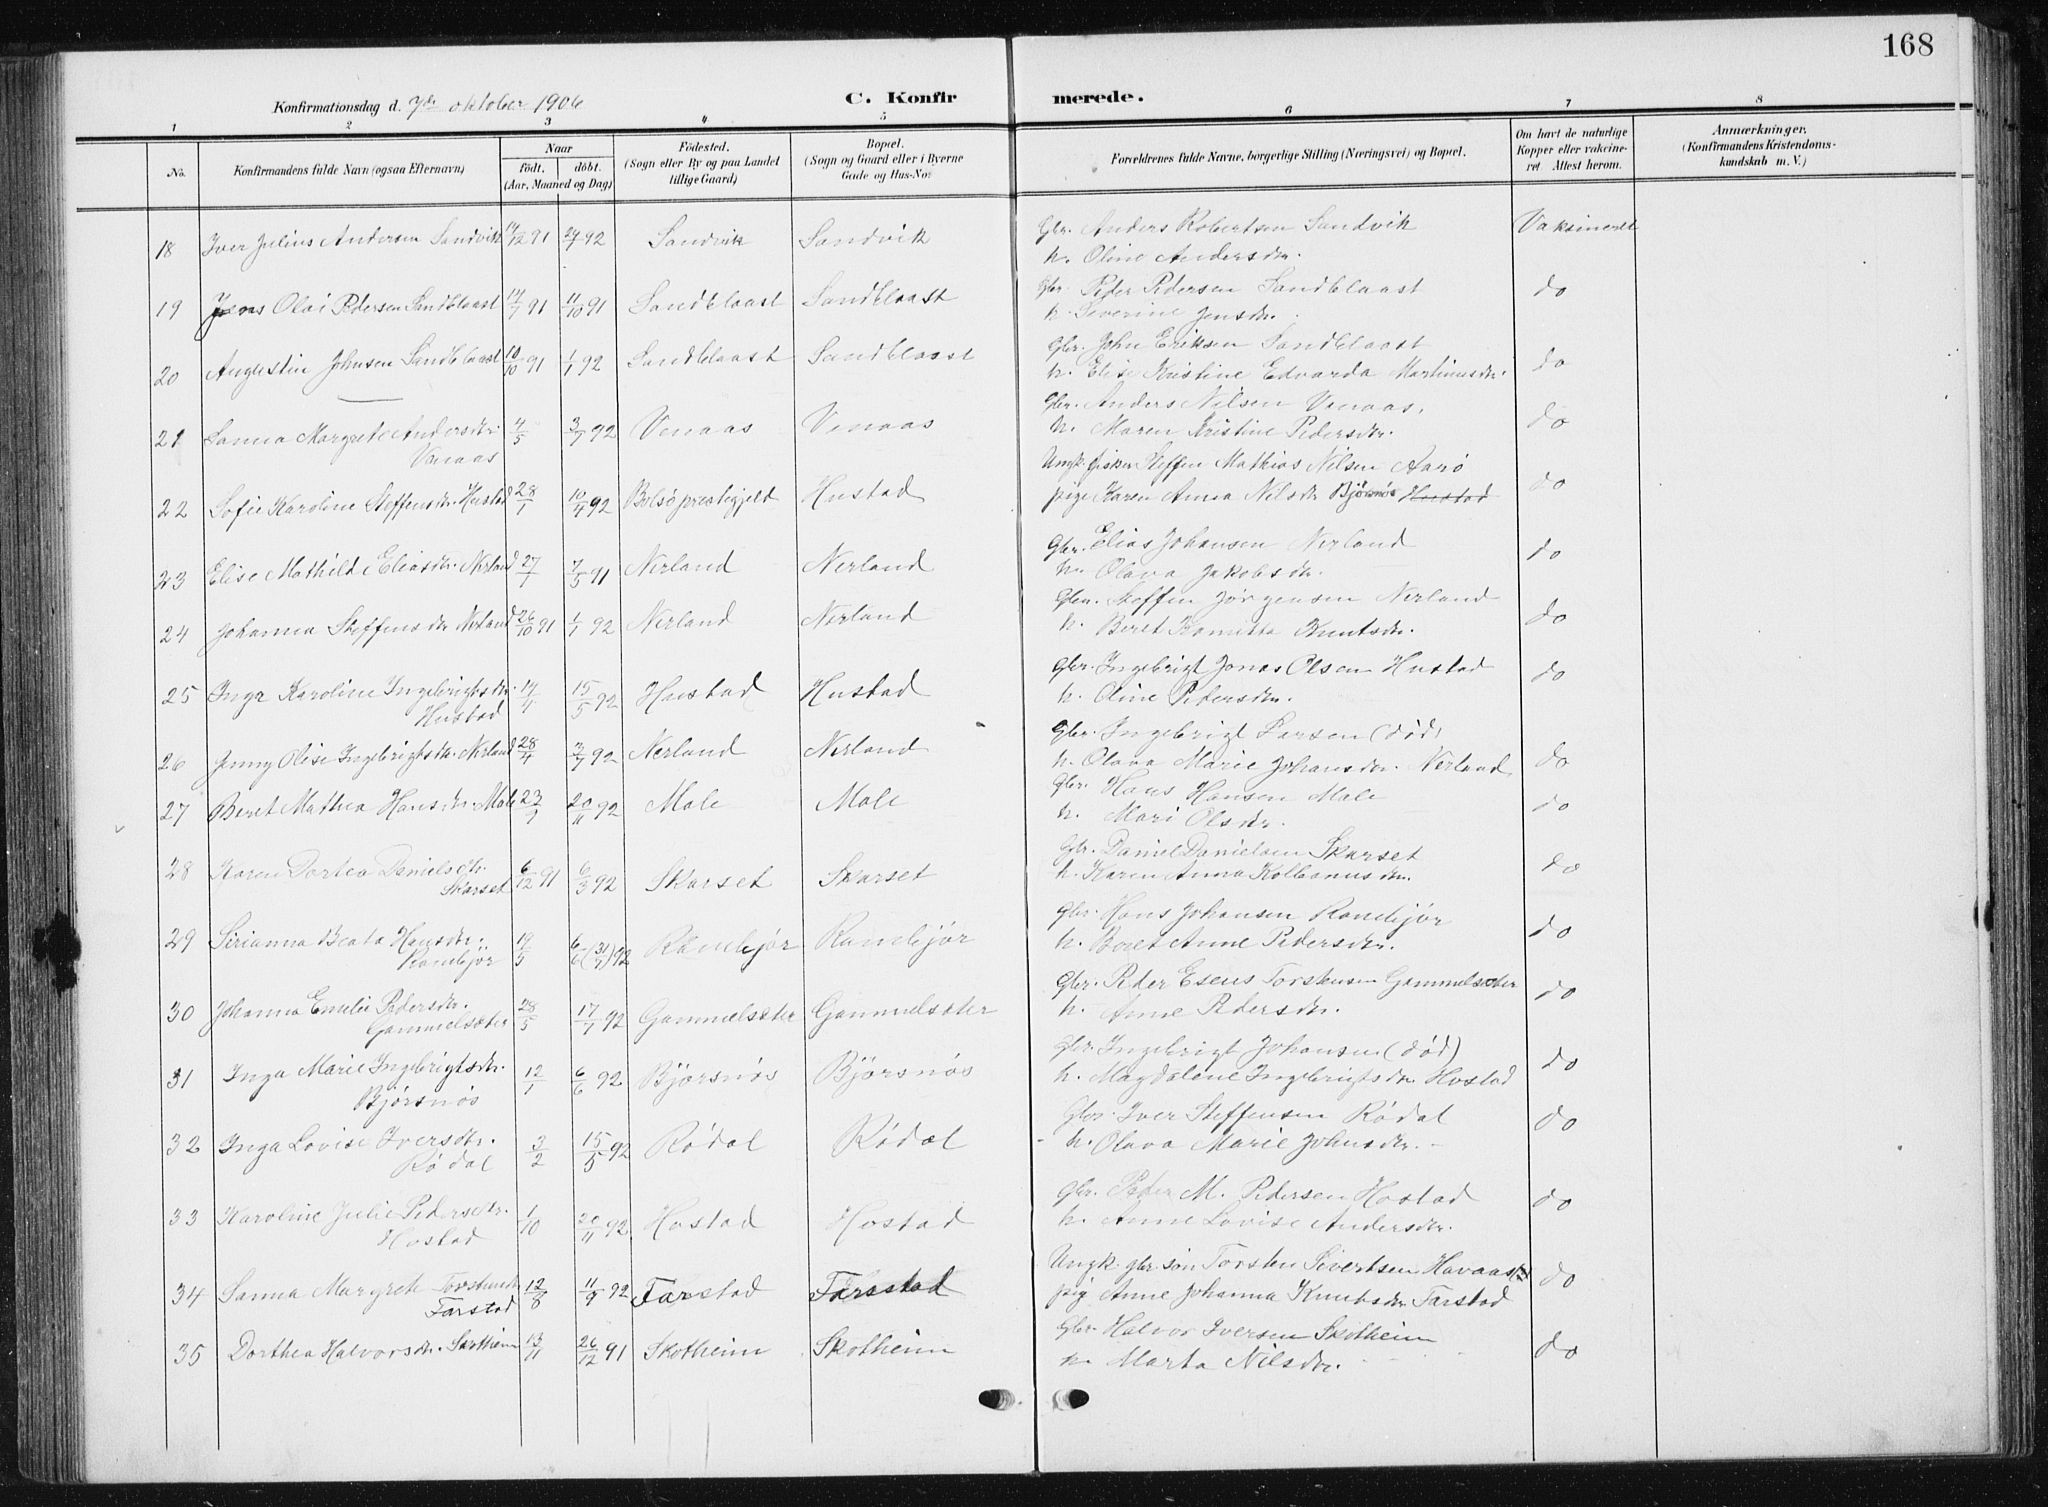 168
Konfirmationsdag d. 7de oktober 1906
C. Konfirmerede.
1 2 3 4 5 6 7 8
No. Konfirmandens fulde Navn (ogsaa Efternavn)
Naar født. døbt. (Aar, Maaned og Dag)
Fødested. (Sogn eller By og paa Landet tillige Gaard)
Bopæl. (Sogn og Gaard eller i Byerne Gade og Hus-No.)
Forældrenes fulde Navne, borgerlige Stilling (Næringsvei) og Bopæl.
Om havt de naturlige Kopper eller vakcineret Attest herom.
Anmærkninger. (Konfirmandens Kristendomskundskab m. V.)
18 Iver Julius Andersen Sandvik 14/12 91 24/1 92 Sandvik Sandvik Gbr. Anders Robertsen Sandvik Vaksineret
h. Oline Andersdtr.
19 Jens Olai Pedersen Sandblaast 14/7 91 11/10 91 Sandblaast Sandblaast Gbr. Peder Pedersen Sandblaast do
h. Severine Jensdtr.
20 Augustin Johnsen Sandblaast 10/10 91 1/1 92 Sandblaast Sandblaast Gbr. John Eriksen Sandblaast do
h. Elise Kristine Edvarda Martinusdtr.
21 Sanna Margrete Andersdtr. 4/5 3/7 92 Venaas Venaas Gbr. Anders Nilsen Venaas, do
Venaas h. Maren Kristine Pedersdtr.
22 Sofie Karoline Steffensdtr. Hustad 28/1 10/4 92 Bolsø prestegjeld Hustad Ungk. fisker Steffen Mathias Nilsen Aarø do
pige Karen Anna Nilsdtr Bjørsnøs Hustad
23 Elise Mathild Eliasdtr. Nerland 27/1 7/5 91 Nerland Nerland Gbr. Elias Johansen Nerland do
h. Olava Jakobsdtr.
24 Johanna Steffensdtr Nerland 26/10 91 1/1 92 Nerland Nerland Gbr. Steffen Jørgensen Nerland do
h. Beret Kamitta Knutsdtr.
25 Inga Karoline Ingebrigtsdtr. 14/4 15/5 92 Hustad Hustad Gbr. Ingebrigt Jonas Olsen Hustad do
Hustad h. Oline Pedersdtr.
26 Jenny Olise Ingebrigtsdtr. Nerland 28/4 3/7 92 Nerland Nerland Gbr. Ingebrigt Larsen (død) do
h. Olava Marie Johansdtr. Nerland
27 Beret Mathea Hansdtr. Male 23/9 20/11 92 Male Male Gbr. Hans Hansen Male do
h. Mari Olsdtr.
28 Karen Dortea Danielsdtr. 6/12 91 6/3 92 Skarset Skarset Gbr. Daniel Danielsen Skarset do
Skarset h. Karen Anna Kolbenusdtr.
29 Sirianna Beata Hansdtr. 19/5 6/6 (31/7) 92 Ranebjør Ranebjør Gbr. Hans Johansen Ranebjør do
Ranebjør h. Beret Anne Pedersdtr.
30 Johanna Emelie Pedersdtr. 28/5 17/7 92 Gammelsæter Gammelsæter Gbr. Peder Esens Torstensen Gammelsæter do
Gammelsæter h. Anne Pedersdtr.
31 Inga Marie Ingebrigtsdtr. 12/1 6/6 92 Bjørsnøs Bjørsnøs Gbr. Ingebrigt Johansen (død) do
Bjørsnøs h. Magdalene Ingebrigtsdtr Hostad
32 Inga Lovise Iversdtr. 3/2 15/5 92 Rødal Rødal Gbr. Iver Steffensen Rødal do
Rødal h. Olava Marie Johnsdtr.
33 Karoline Julie Pedersdtr. 1/10 20/11 92 Hostad Hostad Gbr. Peder M. Pedersen Hostad do
Hostad h. Anne Lovise Andersdtr.
34 Sanna Margrete Torstensdtr 12/8 11/9 92 Farstad Farstad Ungk. gbr. søn Torsten Sivertsen Havaas do
Farstad pig. Anne Johanna Knutsdtr Farstad
35 Dorthea Halvorsdtr. Skotheim 13/11 26/12 91 Skotheim Skotheim Gbr. Halvor Iversen Skotheim do
h. Marta Nilsdtr.